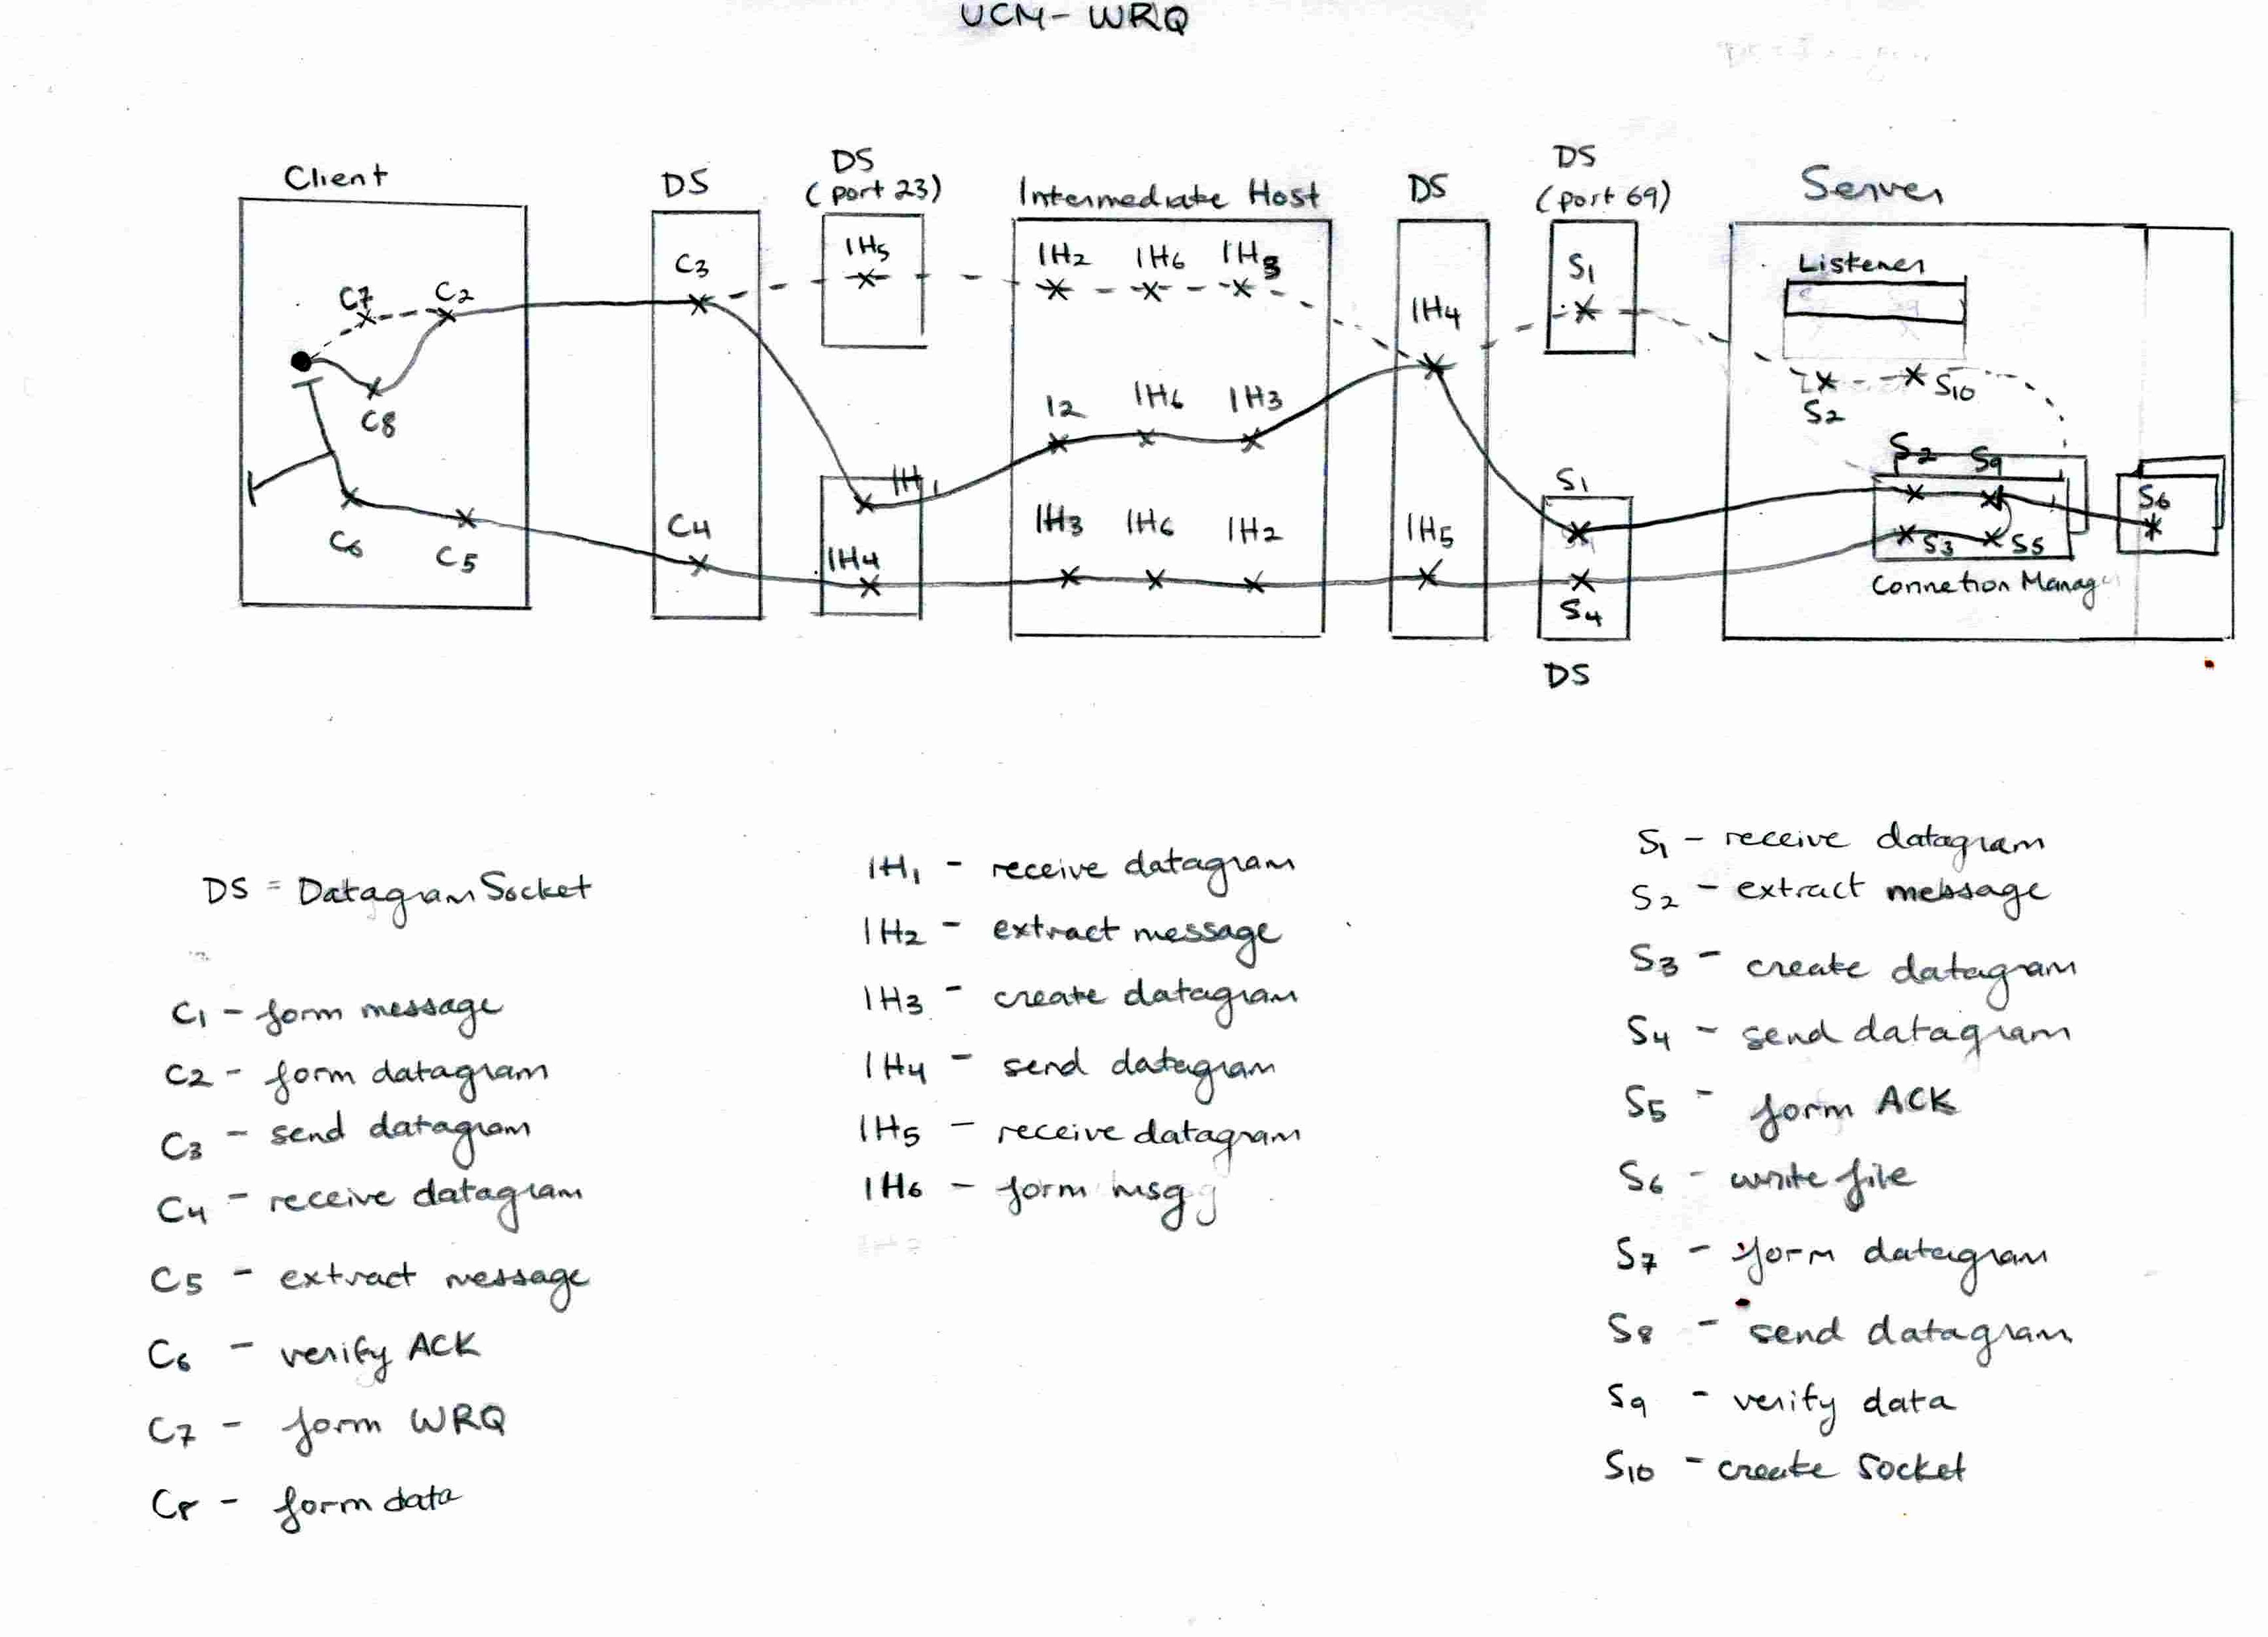 UCM - WRQ
Client
DS
DS
(port 23)
Intermediate Host
DS
DS
(port 69)
Server
C7
C2
C8
C6
C5
C3
C4
IH5
IH1
IH4
IH2 IH6 IH3
I2 IH6 IH3
IH3 IH6 IH2
IH4
IH5
S1
S1
S4
DS
Listener
S2
S10
S2 S9
S3 S5
Connetion Manag
S6
DS = Datagram Socket
C1 - form message
C2 - form datagram
C3 - send datagram
C4 - receive datagram
C5 - extract message
C6 - verify ACK
C7 - form WRQ
C8 - form data
IH1 - receive datagram
IH2 - extract message
IH3 - create datagram
IH4 - send datagram
IH5 - receive datagram
IH6 - form msg
S1 - receive datagram
S2 - extract message
S3 - create datagram
S4 - send datagram
S5 - form ACK
S6 - write file
S7 - form datagram
S8 - send datagram
S9 - verify data
S10 - create socket